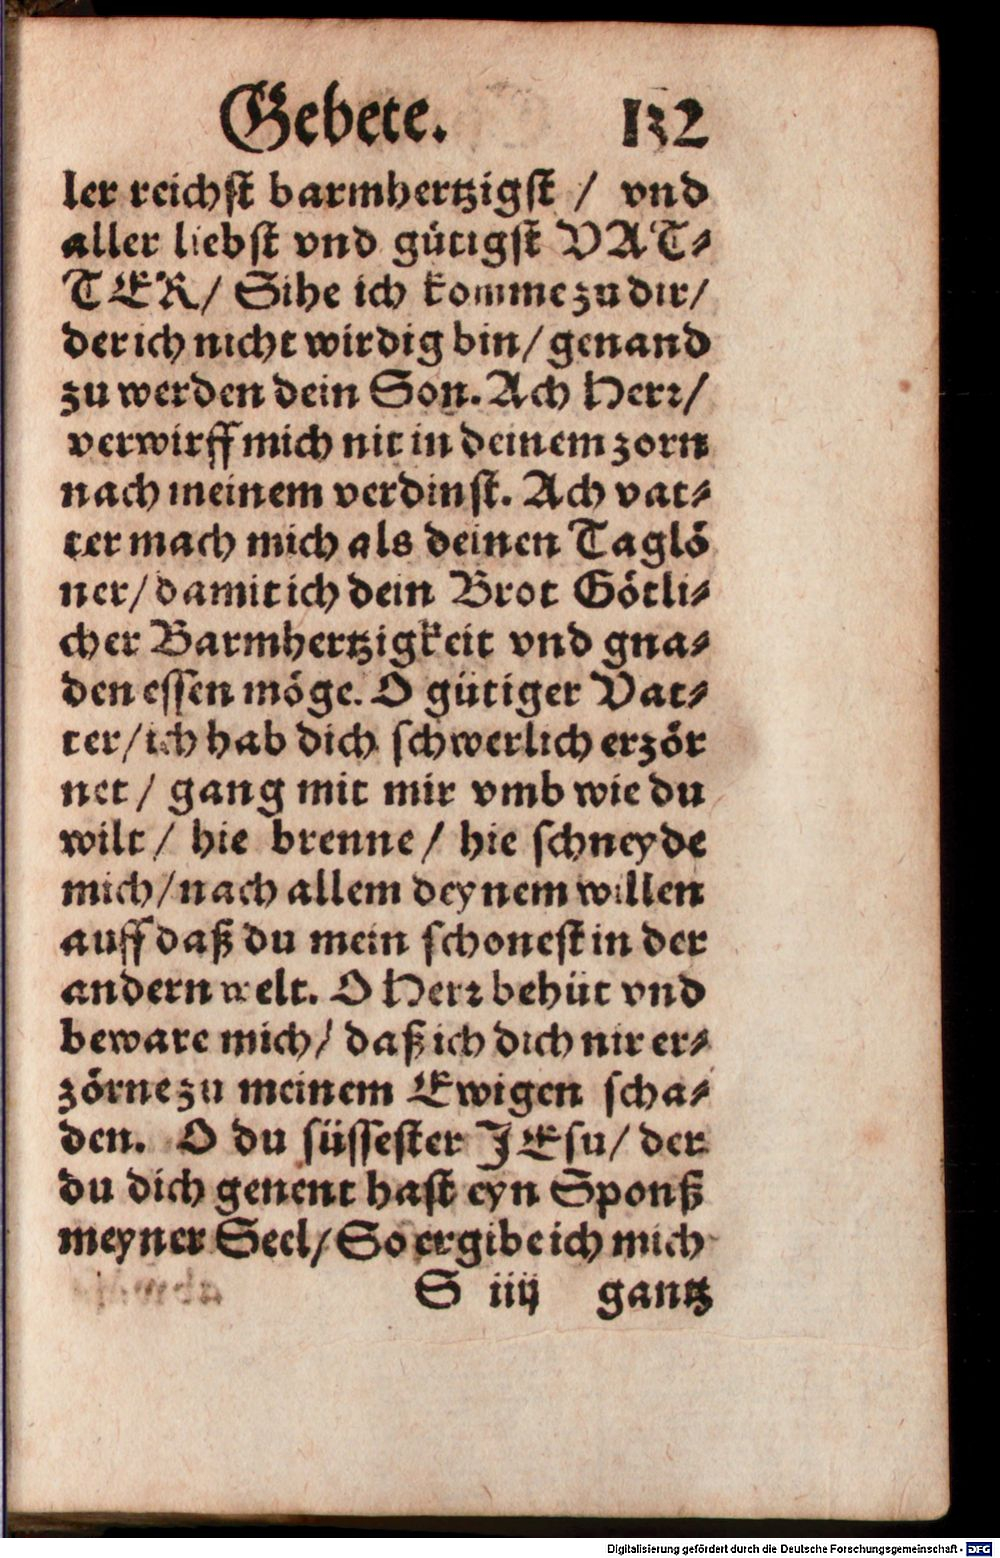 Gebete. 132
ler reichst barmhertzigst / vnd
aller liebst vnd gütigst VAT⸗
TER/ Sihe ich komme zu dir/
der ich nicht wirdig bin/ genand
zu werden dein Son. Ach Herꝛ/
verwirff mich nit in deinem zorn
nach meinem verdinst. Ach vat⸗
ter mach mich als deinen Taglö
ner/ damit ich dein Brot Götli⸗
cher Barmhertzigkeit vnd gna⸗
den essen möge. O gütiger Vat⸗
ter/ ich hab dich schwerlich erzör
net / gang mit mir vmb wie du
wilt / hie brenne / hie schneyde
mich/ nach allem deynem willen
auff daß du mein schonest in der
andern welt. O Herꝛ behüt vnd
beware mich/ daß ich dich nit er⸗
zörne zu meinem Ewigen scha⸗
den. O du süssester JEsu/ der
du dich genent hast eyn Sponß
meyner Seel/ So ergibe ich mich
S iiij gantz
Digitalisierung gefördert durch die Deutsche Forschungsgemeinschaft - DFG